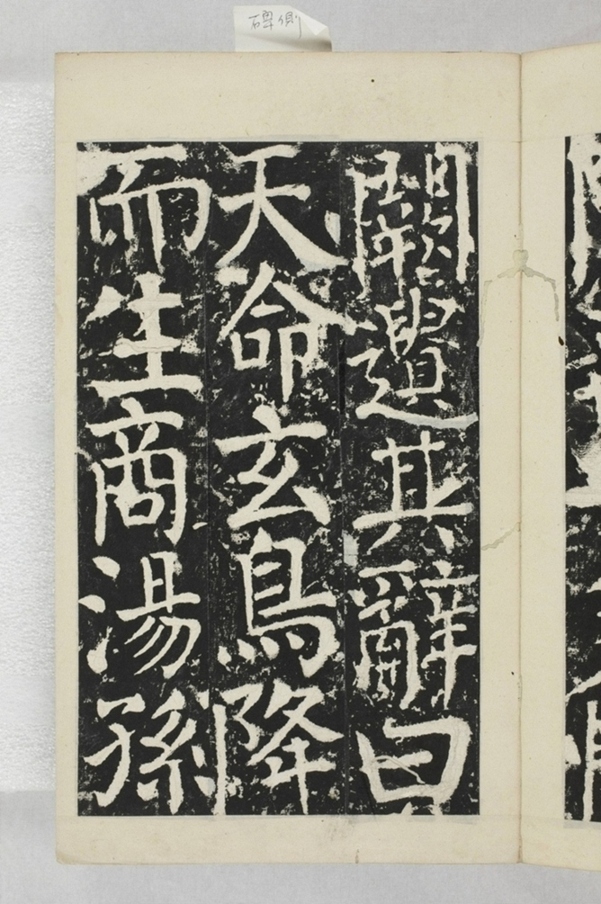 碑側
闕遺其辭曰
天命玄鳥降
而生商湯孫